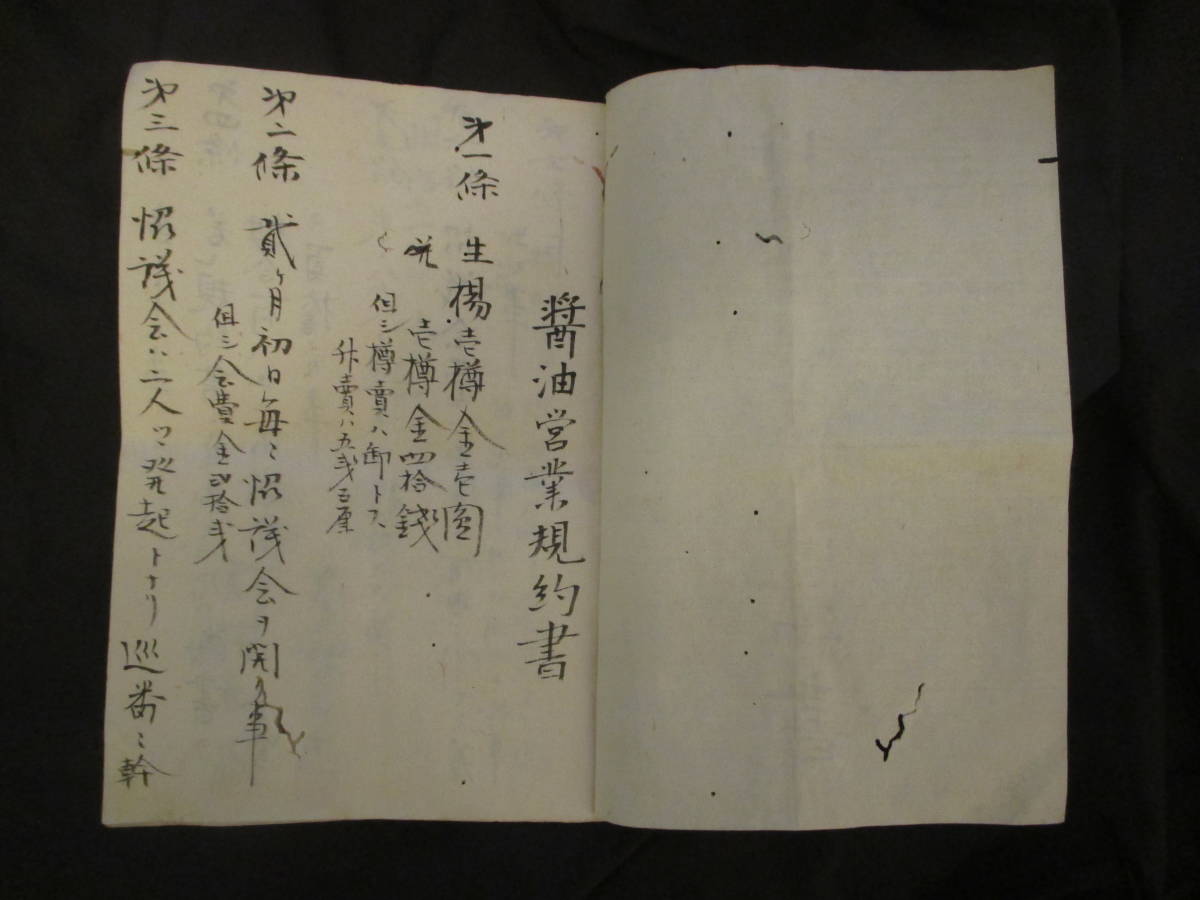 醬油営業規約書
第一條 生揚壱樽金壱圓
壱樽金四拾錢
但シ樽賣ハ卸トス
賣ハ五
第二條 貳ヶ月初日毎ニ懇談会ヲ開ク事
但シ会費金貳拾
第三條 会ハ二人ツヽ発起トナリ巡番ニ幹